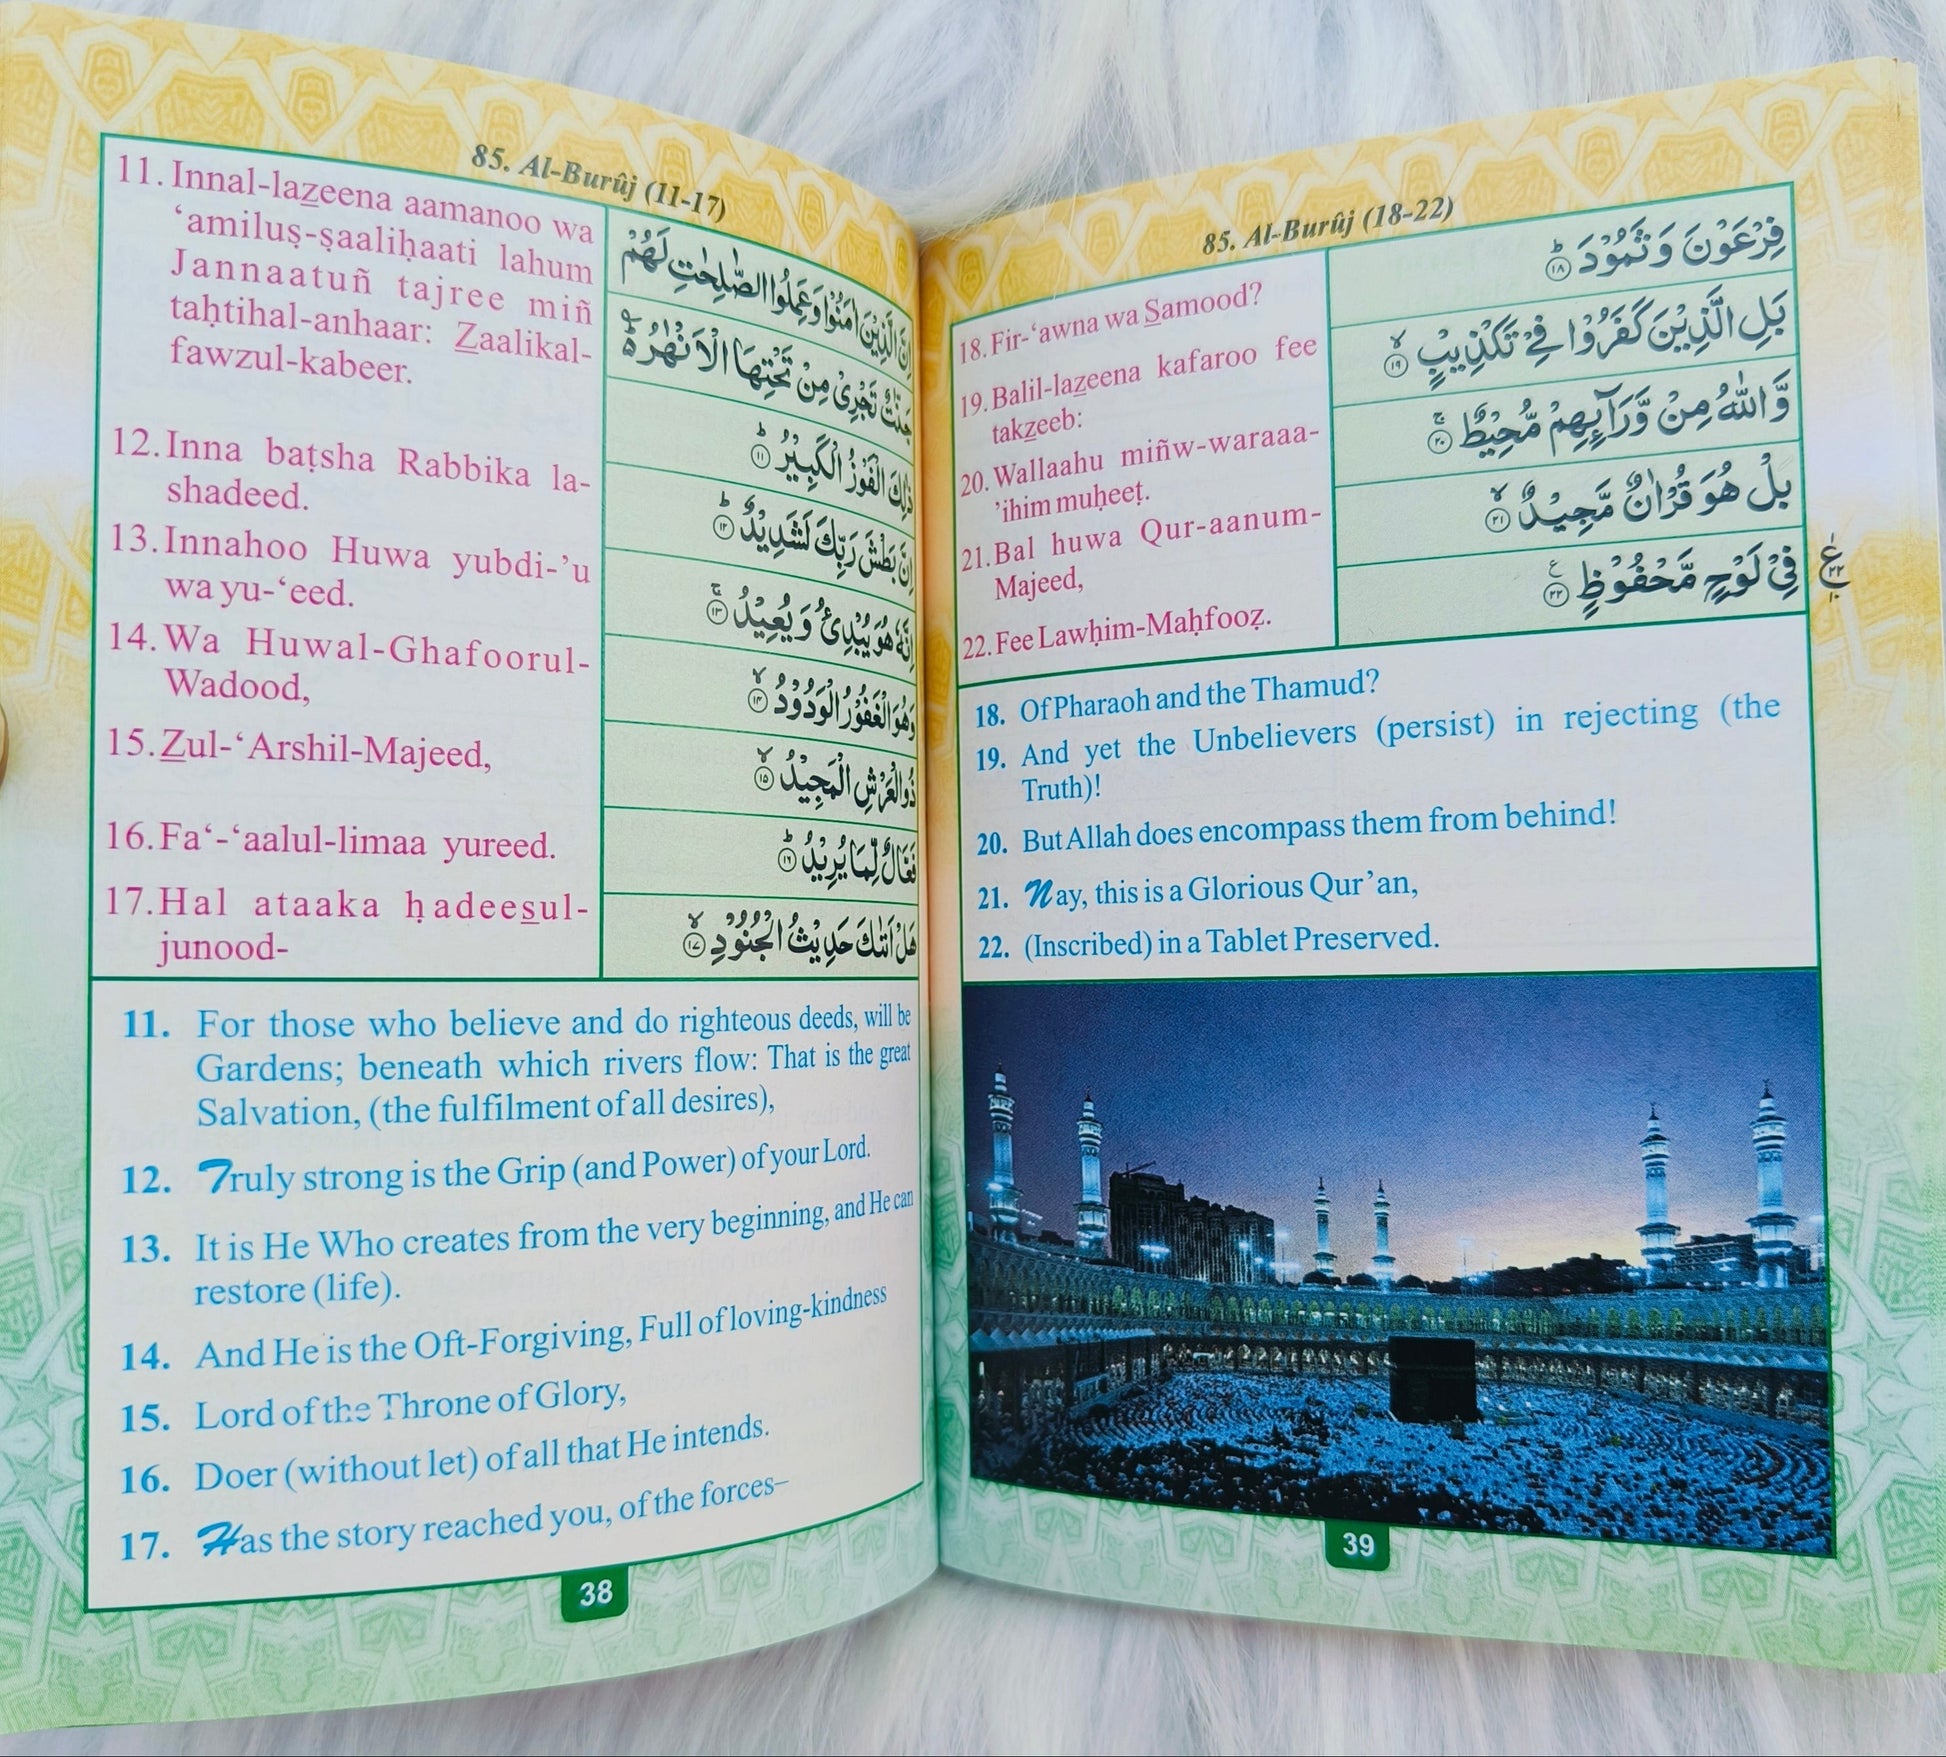 85. Al-Burûj (11-17)
11. Innal-lazeena aamanoo wa
‘amiluṣ-ṣaaliḥaati lahum
Jannaatuñ tajree miñ
taḥtihal-anhaar: Zaalikal-
fawzul-kabeer.
12. Inna baṭsha Rabbika la-
shadeed.
13. Innahoo Huwa yubdi-’u
wa yu-‘eed.
14. Wa Huwal-Ghafoorul-
Wadood,
15. Zul-‘Arshil-Majeed,
16. Fa‘-‘aalul-limaa yureed.
17. Hal ataaka ḥadeesul-
junood-
اِنَّ الَّذِيْنَ اٰمَنُوْا وَعَمِلُوا الصّٰلِحٰتِ لَهُمْ
جَنّٰتٌ تَجْرِيْ مِنْ تَحْتِهَا الْاَنْهٰرُ ؕ
ذٰلِكَ الْفَوْزُ الْكَبِيْرُ ؕ ۱۱
اِنَّ بَطْشَ رَبِّكَ لَشَدِيْدٌ ؕ ۱۲
اِنَّهٗ هُوَ يُبْدِئُ وَ يُعِيْدُ ۚ ۱۳
وَهُوَ الْغَفُوْرُ الْوَدُوْدُ ۙ ۱۴
ذُو الْعَرْشِ الْمَجِيْدُ ۙ ۱۵
فَعَّالٌ لِّمَا يُرِيْدُ ؕ ۱۶
هَلْ اَتٰىكَ حَدِيْثُ الْجُنُوْدِ ۙ ۱۷
11. For those who believe and do righteous deeds, will be
Gardens; beneath which rivers flow: That is the great
Salvation, (the fulfilment of all desires),
12. Truly strong is the Grip (and Power) of your Lord.
13. It is He Who creates from the very beginning, and He can
restore (life).
14. And He is the Oft-Forgiving, Full of loving-kindness
15. Lord of the Throne of Glory,
16. Doer (without let) of all that He intends.
17. Has the story reached you, of the forces–
38
85. Al-Burûj (18-22)
18. Fir-‘awna wa Samood?
19. Balil-lazeena kafaroo fee
takzeeb:
20. Wallaahu miñw-waraaa-
’ihim muḥeeṭ.
21. Bal huwa Qur-aanum-
Majeed,
22. Fee Lawḥim-Maḥfooẓ.
فِرْعَوْنَ وَ ثَمُوْدَ ؕ ۱۸
بَلِ الَّذِيْنَ كَفَرُوْا فِيْ تَكْذِيْبٍ ۙ ۱۹
وَّ اللّٰهُ مِنْ وَّرَآىِٕهِمْ مُّحِيْطٌ ۚ ۲۰
بَلْ هُوَ قُرْاٰنٌ مَّجِيْدٌ ۙ ۲۱
فِيْ لَوْحٍ مَّحْفُوْظٍ ۲۲
18. Of Pharaoh and the Thamud?
19. And yet the Unbelievers (persist) in rejecting (the
Truth)!
20. But Allah does encompass them from behind!
21. Nay, this is a Glorious Qur’an,
22. (Inscribed) in a Tablet Preserved.
39